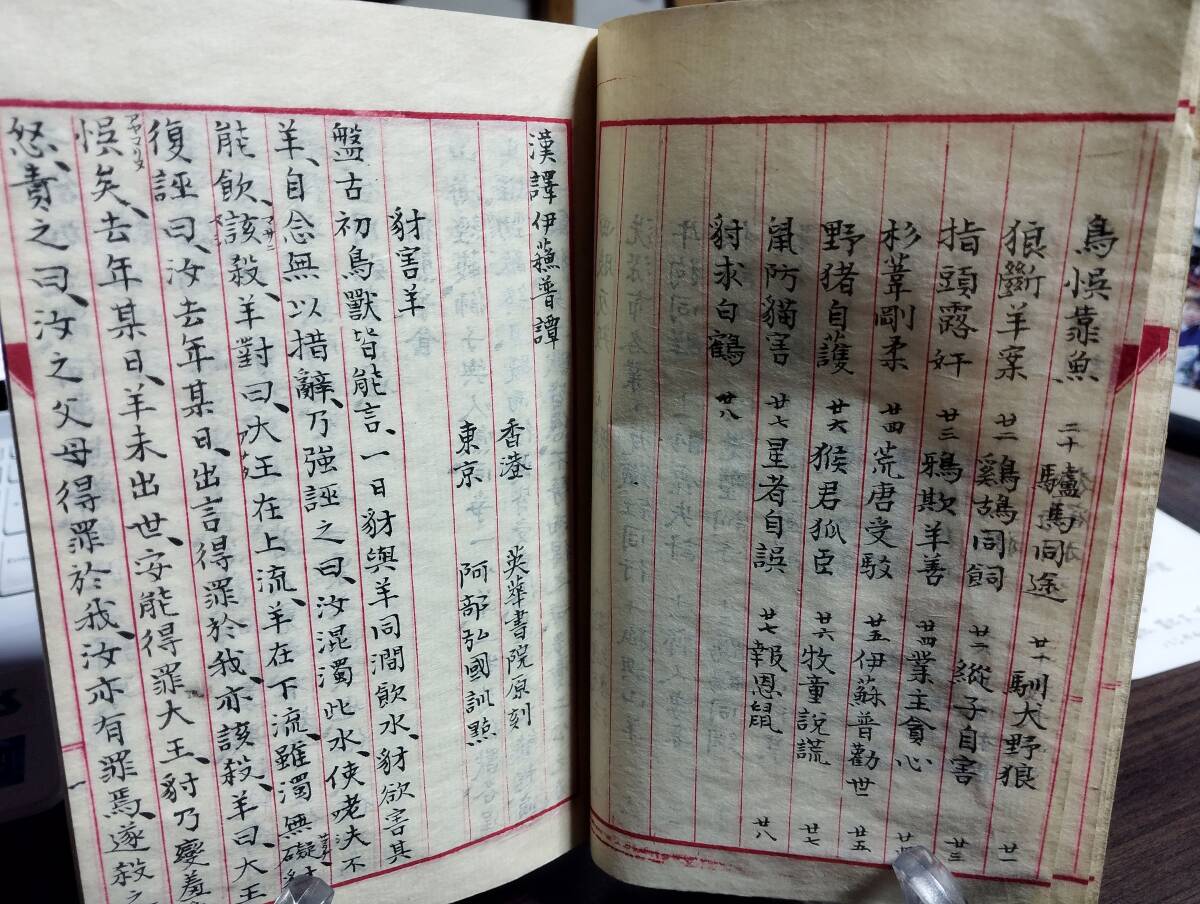 鳥悞靠魚 二十 驢馬同途 廿一 馴犬野狼 廿一
狼斷羊案 廿二 鷄鴣同飼 廿二 縱子自害 廿三
指頭露奸 廿三 鴉欺羊善 廿四 業主貪心
杉葦剛柔 廿四 荒唐受駁 廿五 伊蘇普勸世 廿五
野猪自護 廿六 猴君狐臣 廿六 牧童說謊 廿七
鼠防貓害 廿七 星者自誤 廿七 報恩鼠 廿八
豺求白鶴 廿八
漢譯伊蘓普譚
香港 英華書院原刻
東京 阿部弘國訓點
豺害羊
盤古初鳥獸皆能言、一日豺與羊同澗飲水、豺欲害其
羊、自念無以措辭、乃強誣之曰、汝混濁此水、使咾夫不
能飲、該殺、羊對曰、大王在上流、羊在下流、雖濁無礙
復誣曰、汝去年某日、出言得罪於我、亦該殺、羊曰、大王
悞矣、去年某日、羊未出世、安能得罪大王、豺乃變羞
アヤマリタ
怒、責之曰、汝之父母得罪於我、汝亦有罪焉、遂殺之
一